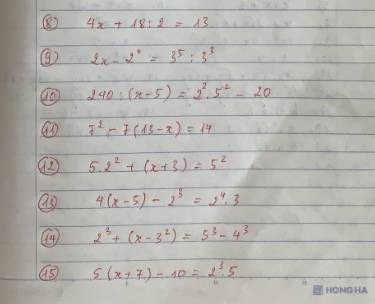 8) 4x + 18 : 2 = 13
9) 2x - 2⁰ = 3⁵ : 3³
10) 240 : (x-5) = 2² . 5² - 20
11) 7² - 7(13-x) = 14
12) 5.2² + (x+3) = 5²
13) 4(x-5) - 2³ = 2⁴ . 3
14) 2³ + (x-3²) = 5³ - 4³
15) 5(x+7) - 10 = 2³.5
HONG HA